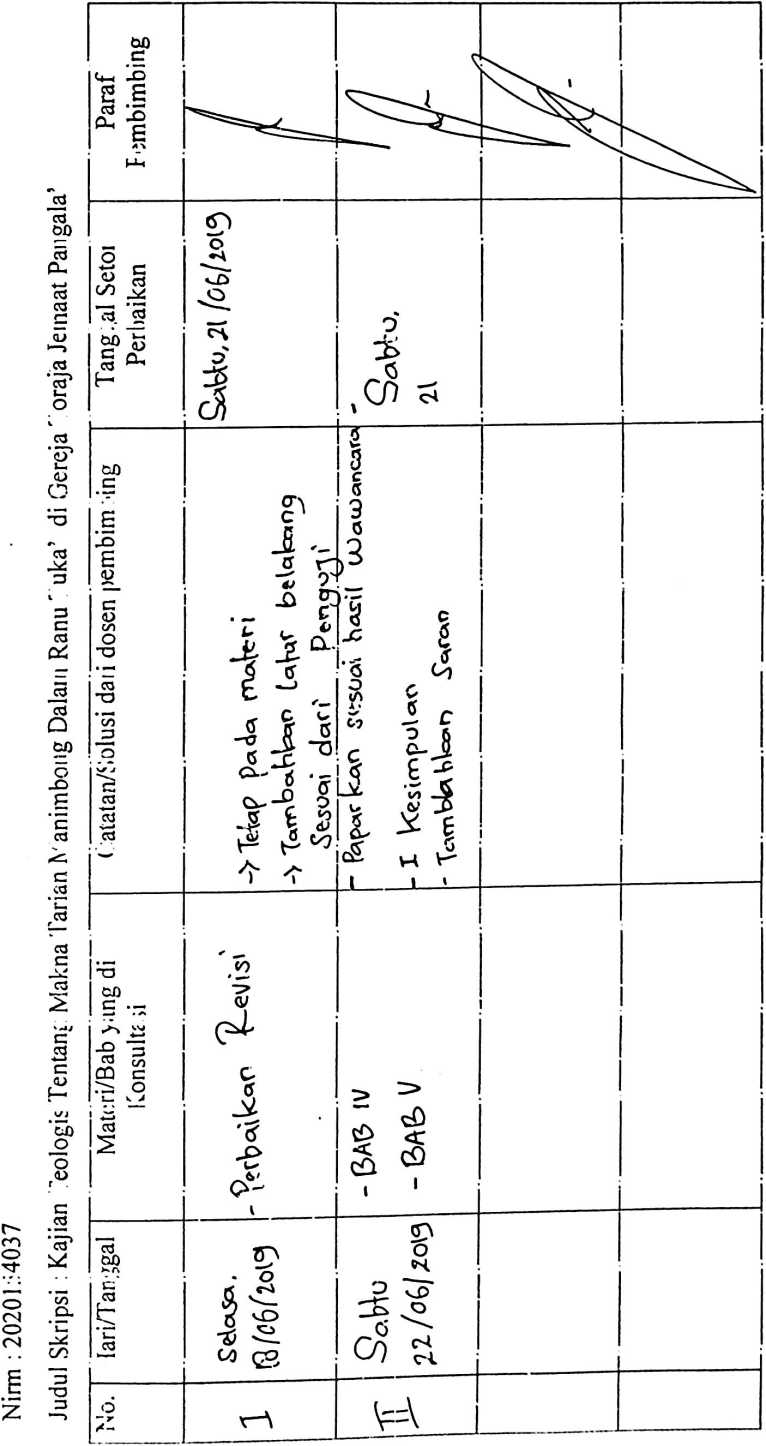 Nirm : 20201:4037
Judul Skripsi : Kajian Teologis Tentang Makna Tarian Manimbong Dalam Ranu Tuka' di Gereja Toraja Jemaat Pangala'
No.
Hari/Tanggal
Materi/Bab yang di
Konsultasi
Catatan/Solusi dari dosen pembimbing
Tanggal Setor
Perbaikan
Paraf
Pembimbing
I
Selasa,
18/06/2019
- Perbaikan Revisi
-> Tetap pada materi
-> Tambahkan Latar belakang
Sesuai dari Penguji
Sabtu, 21/06/2019
II
Sabtu
22/06/2019
- BAB IV
- BAB V
- Paparkan sesuai hasil Wawancara -
- I Kesimpulan
- Tambahkan Saran
Sabtu,
21